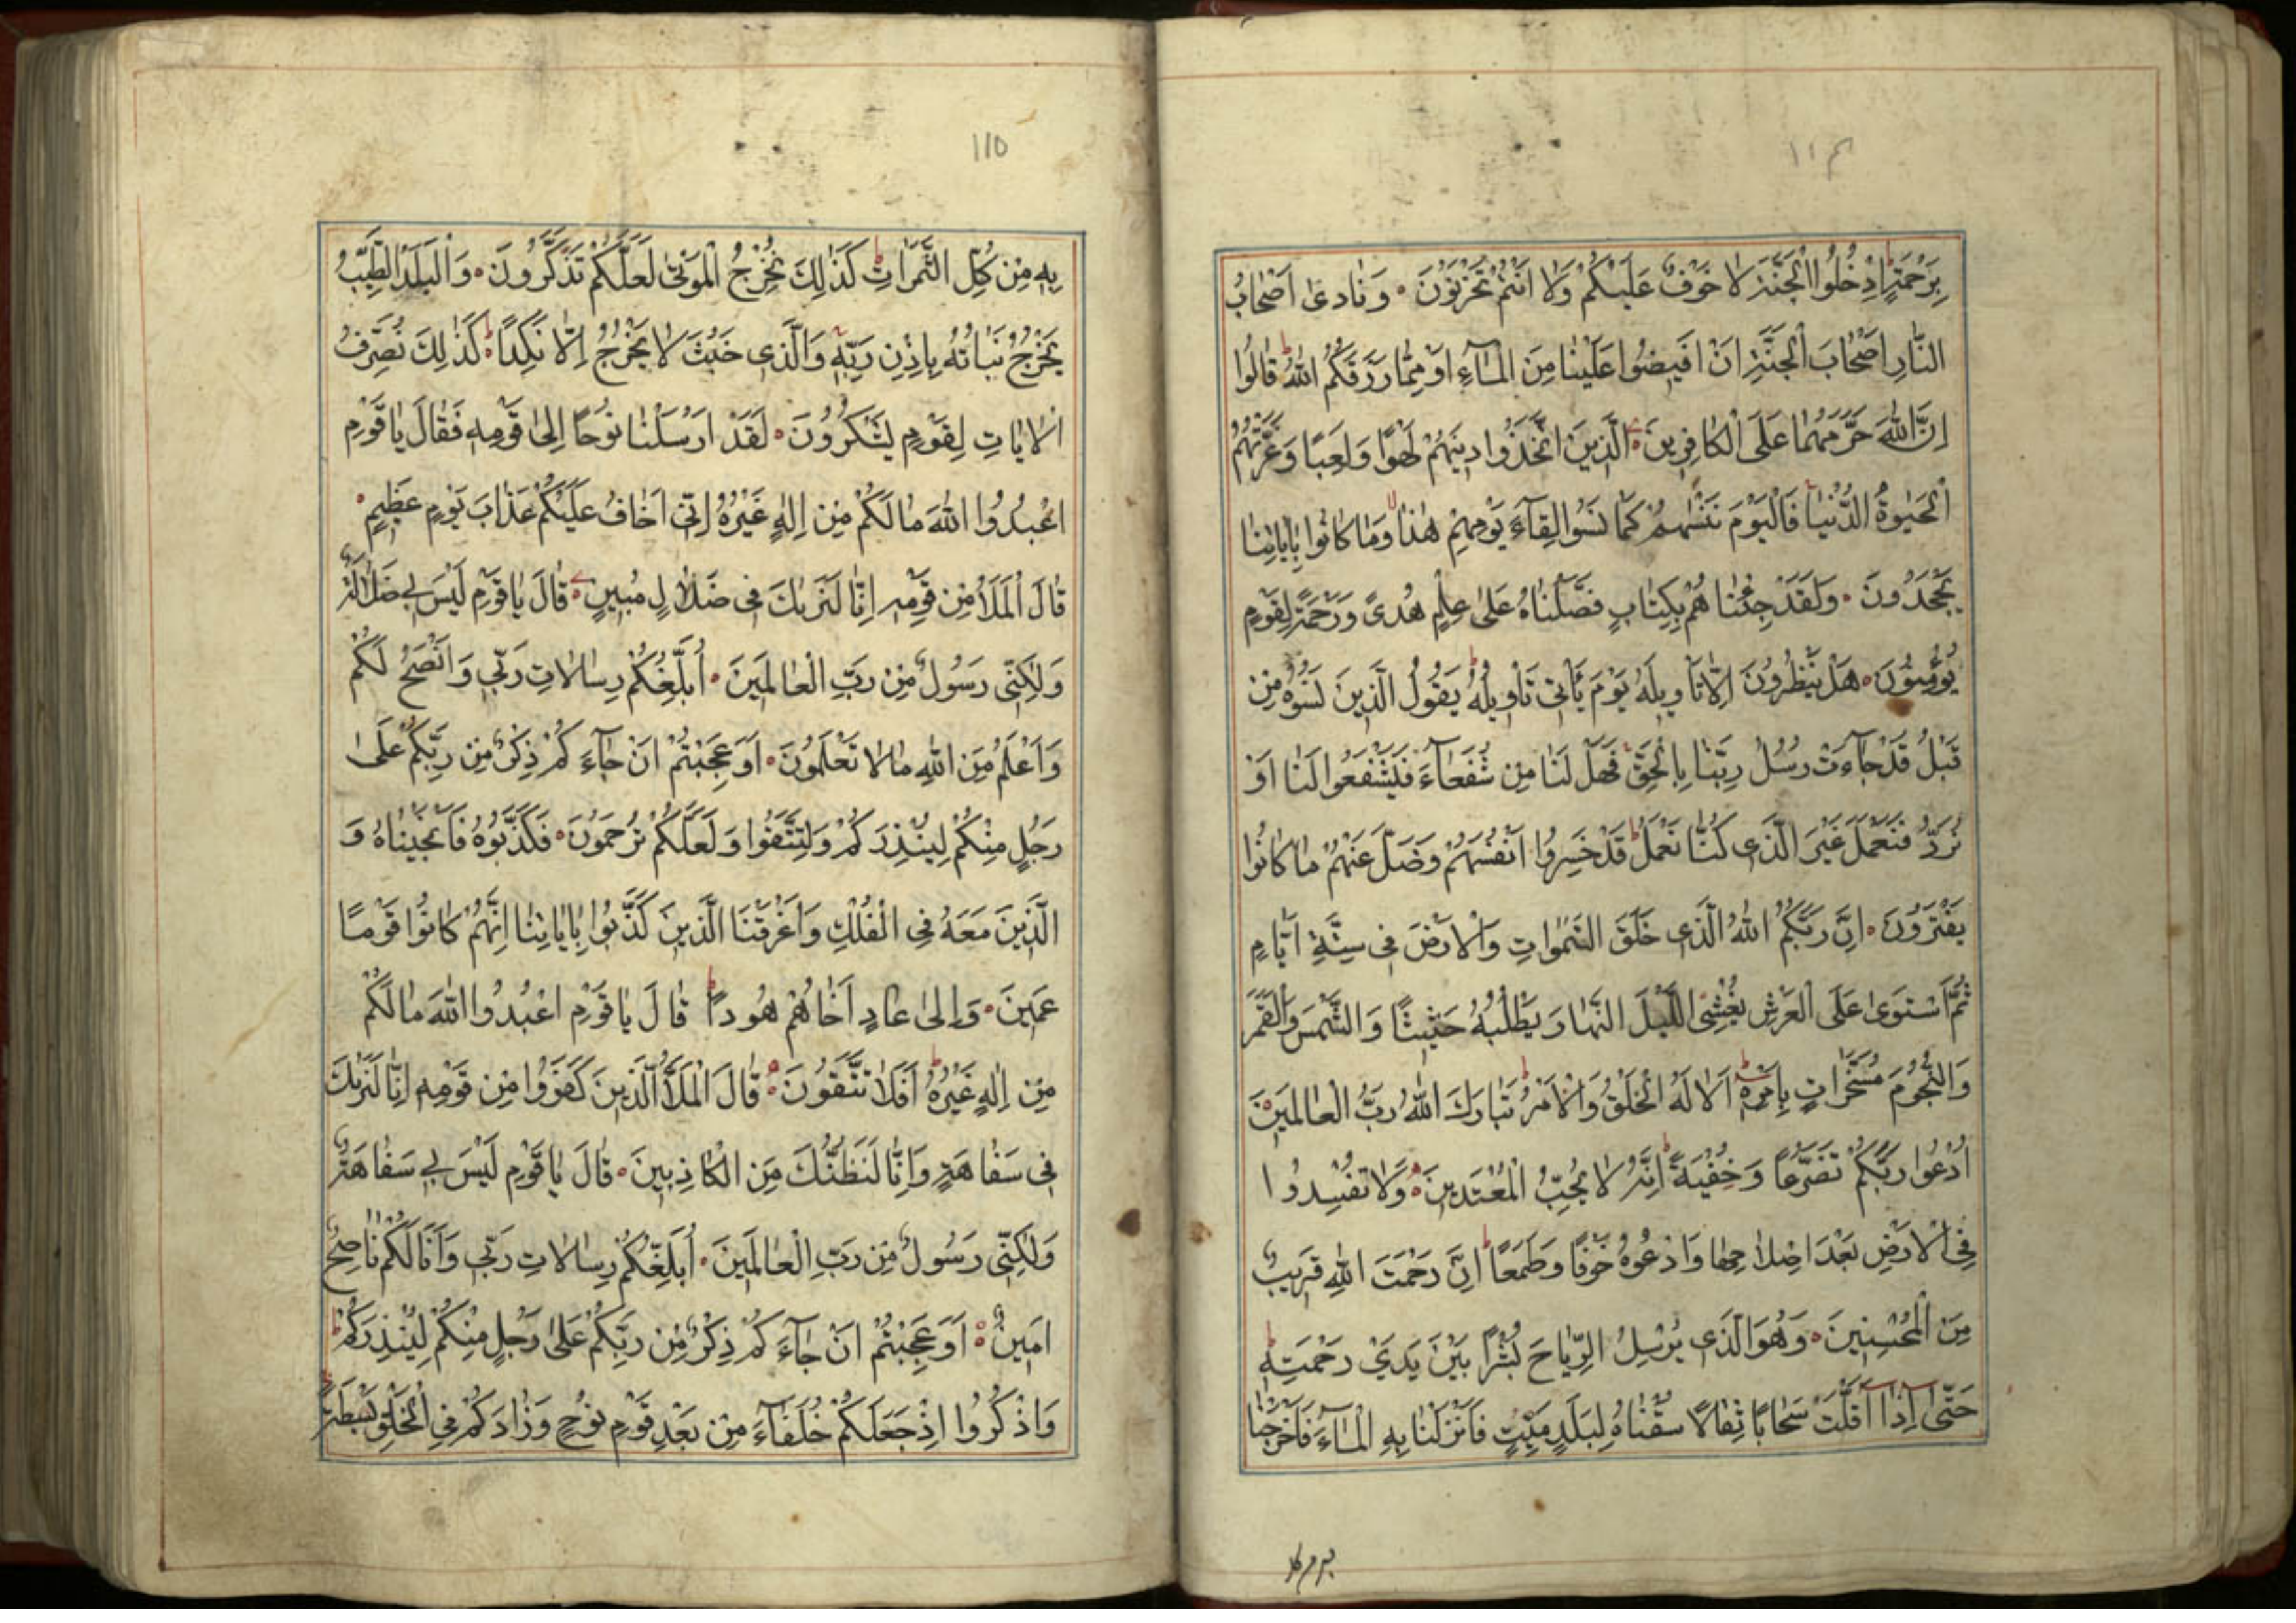 ١١٤
بِرَحْمَةٍ اُدْخُلُوا الْجَنَّةَ لَا خَوْفٌ عَلَيْكُمْ وَلَا اَنْتُمْ تَحْزَنُوْنَ وَنَادٰى اَصْحَابُ
النَّارِ اَصْحَابَ الْجَنَّةِ اَنْ اَفِيْضُوا عَلَيْنَا مِنَ الْمَآءِ اَوْ مِمَّا رَزَقَكُمُ اللهُ قَالُوا
اِنَّ اللهَ حَرَّمَهُمَا عَلَى الْكَافِرِيْنَ الَّذِيْنَ اتَّخَذُوا دِيْنَهُمْ لَهْوًا وَلَعِبًا وَغَرَّتْهُمُ
الْحَيٰوةُ الدُّنْيَا فَالْيَوْمَ نَنْسٰهُمْ كَمَا نَسُوا لِقَآءَ يَوْمِهِمْ هٰذَا وَمَا كَانُوا بِاٰيَاتِنَا
يَجْحَدُوْنَ وَلَقَدْ جِئْنَاهُمْ بِكِتَابٍ فَصَّلْنَاهُ عَلٰى عِلْمٍ هُدًى وَرَحْمَةً لِقَوْمٍ
يُؤْمِنُوْنَ هَلْ يَنْظُرُوْنَ اِلَّا تَاْوِيْلَهُ يَوْمَ يَاْتِى تَاْوِيْلُهُ يَقُوْلُ الَّذِيْنَ نَسُوْهُ مِنْ
قَبْلُ قَدْ جَآءَتْ رُسُلُ رَبِّنَا بِالْحَقِّ فَهَلْ لَنَا مِنْ شُفَعَآءَ فَيَشْفَعُوا لَنَا اَوْ
نُرَدُّ فَنَعْمَلَ غَيْرَ الَّذِى كُنَّا نَعْمَلُ قَدْ خَسِرُوا اَنْفُسَهُمْ وَضَلَّ عَنْهُمْ مَا كَانُوا
يَفْتَرُوْنَ اِنَّ رَبَّكُمُ اللهُ الَّذِى خَلَقَ السَّمٰوَاتِ وَالْاَرْضَ فِى سِتَّةِ اَيَّامٍ
ثُمَّ اسْتَوٰى عَلَى الْعَرْشِ يُغْشِى اللَّيْلَ النَّهَارَ يَطْلُبُهُ حَثِيْثًا وَالشَّمْسَ وَالْقَمَرَ
وَالنُّجُوْمَ مُسَخَّرَاتٍ بِاَمْرِهِ اَلَا لَهُ الْخَلْقُ وَالْاَمْرُ تَبَارَكَ اللهُ رَبُّ الْعَالَمِيْنَ
اُدْعُوا رَبَّكُمْ تَضَرُّعًا وَخُفْيَةً اِنَّهُ لَا يُحِبُّ الْمُعْتَدِيْنَ وَلَا تُفْسِدُوا
فِى الْاَرْضِ بَعْدَ اِصْلَاحِهَا وَادْعُوْهُ خَوْفًا وَطَمَعًا اِنَّ رَحْمَتَ اللهِ قَرِيْبٌ
مِنَ الْمُحْسِنِيْنَ وَهُوَ الَّذِى يُرْسِلُ الرِّيَاحَ بُشْرًا بَيْنَ يَدَيْ رَحْمَتِهِ
حَتّٰى اِذَا اَقَلَّتْ سَحَابًا ثِقَالًا سُقْنَاهُ لِبَلَدٍ مَيِّتٍ فَاَنْزَلْنَا بِهِ الْمَآءَ فَاَخْرَجْنَا
به من كل
١١٥
بِهِ مِنْ كُلِّ الثَّمَرَاتِ كَذٰلِكَ نُخْرِجُ الْمَوْتٰى لَعَلَّكُمْ تَذَكَّرُوْنَ وَالْبَلَدُ الطَّيِّبُ
يَخْرُجُ نَبَاتُهُ بِاِذْنِ رَبِّهِ وَالَّذِى خَبُثَ لَا يَخْرُجُ اِلَّا نَكِدًا كَذٰلِكَ نُصَرِّفُ
الْاٰيَاتِ لِقَوْمٍ يَشْكُرُوْنَ لَقَدْ اَرْسَلْنَا نُوْحًا اِلٰى قَوْمِهِ فَقَالَ يَاقَوْمِ
اعْبُدُوا اللهَ مَا لَكُمْ مِنْ اِلٰهٍ غَيْرُهُ اِنِّى اَخَافُ عَلَيْكُمْ عَذَابَ يَوْمٍ عَظِيْمٍ
قَالَ الْمَلَأُ مِنْ قَوْمِهِ اِنَّا لَنَرٰىكَ فِى ضَلَالٍ مُبِيْنٍ قَالَ يَاقَوْمِ لَيْسَ بِى ضَلَالَةٌ
وَلٰكِنِّى رَسُوْلٌ مِنْ رَبِّ الْعَالَمِيْنَ اُبَلِّغُكُمْ رِسَالَاتِ رَبِّى وَاَنْصَحُ لَكُمْ
وَاَعْلَمُ مِنَ اللهِ مَا لَا تَعْلَمُوْنَ اَوَعَجِبْتُمْ اَنْ جَآءَكُمْ ذِكْرٌ مِنْ رَبِّكُمْ عَلٰى
رَجُلٍ مِنْكُمْ لِيُنْذِرَكُمْ وَلِتَتَّقُوا وَلَعَلَّكُمْ تُرْحَمُوْنَ فَكَذَّبُوْهُ فَاَنْجَيْنَاهُ وَ
الَّذِيْنَ مَعَهُ فِى الْفُلْكِ وَاَغْرَقْنَا الَّذِيْنَ كَذَّبُوا بِاٰيَاتِنَا اِنَّهُمْ كَانُوا قَوْمًا
عَمِيْنَ وَاِلٰى عَادٍ اَخَاهُمْ هُوْدًا قَالَ يَاقَوْمِ اعْبُدُوا اللهَ مَا لَكُمْ
مِنْ اِلٰهٍ غَيْرُهُ اَفَلَا تَتَّقُوْنَ قَالَ الْمَلَأُ الَّذِيْنَ كَفَرُوْا مِنْ قَوْمِهِ اِنَّا لَنَرٰىكَ
فِى سَفَاهَةٍ وَاِنَّا لَنَظُنُّكَ مِنَ الْكَاذِبِيْنَ قَالَ يَاقَوْمِ لَيْسَ بِى سَفَاهَةٌ
وَلٰكِنِّى رَسُوْلٌ مِنْ رَبِّ الْعَالَمِيْنَ اُبَلِّغُكُمْ رِسَالَاتِ رَبِّى وَاَنَا لَكُمْ نَاصِحٌ
اَمِيْنٌ اَوَعَجِبْتُمْ اَنْ جَآءَكُمْ ذِكْرٌ مِنْ رَبِّكُمْ عَلٰى رَجُلٍ مِنْكُمْ لِيُنْذِرَكُمْ
وَاذْكُرُوا اِذْ جَعَلَكُمْ خُلَفَآءَ مِنْ بَعْدِ قَوْمِ نُوْحٍ وَزَادَكُمْ فِى الْخَلْقِ بَسْطَةً